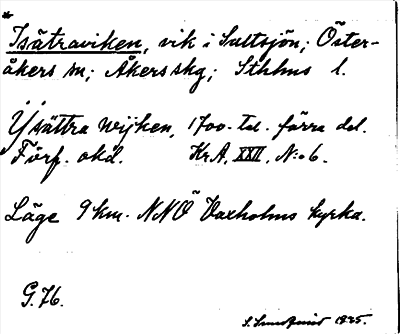 *
Isätraviken, vik i Saltsjön; Öster-
åkers sn; Åkers skg; Sthlms l.
Ÿsättra wijken, 1700-tal. förra del.
Förf. okd. Kr A, XXII, N:o 6.
Läge 9 km. NNÖ Vaxholms kyrka.
G. 76.
S. 1925.